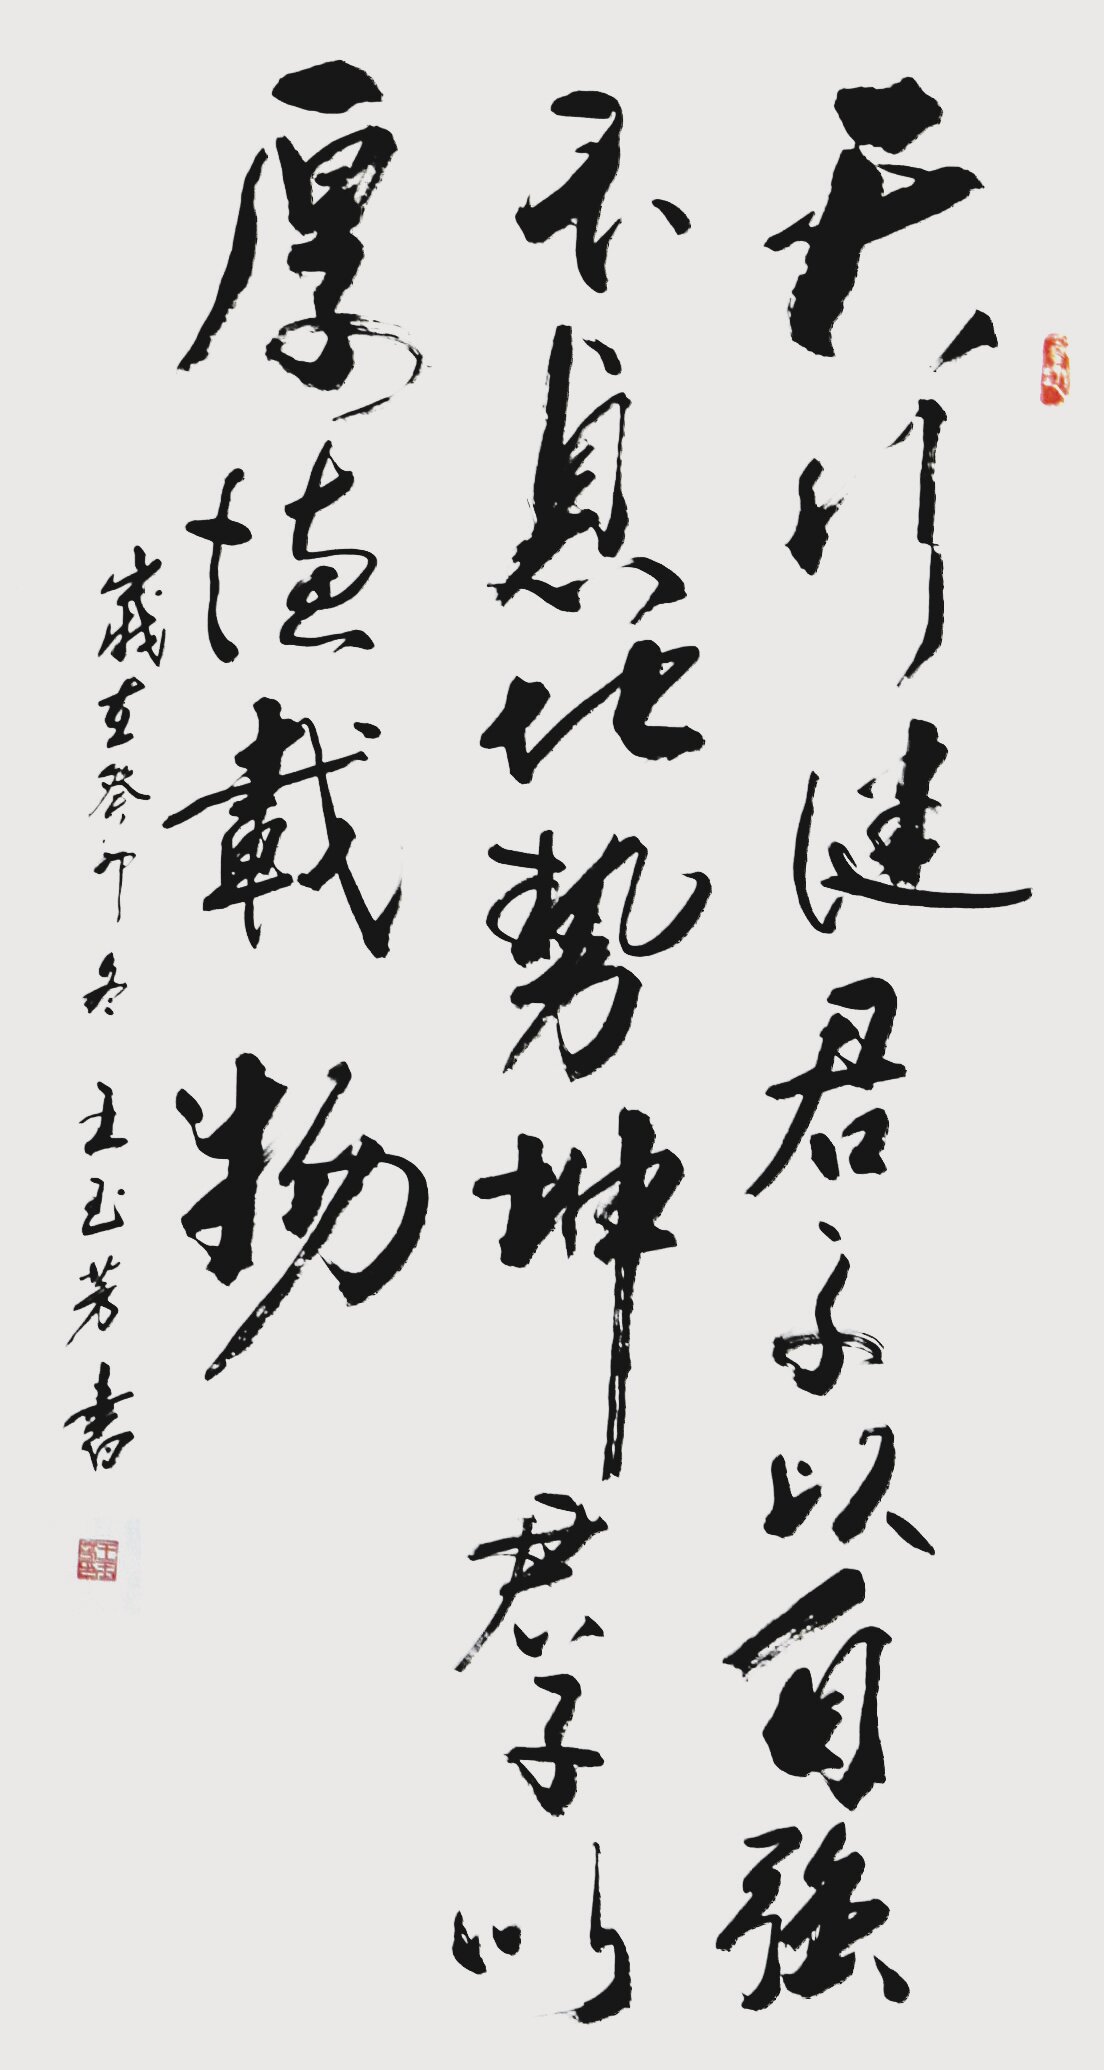 天行健君子以自強
不息地勢坤君子以
厚德載物
歲在癸卯冬 王玉芳書